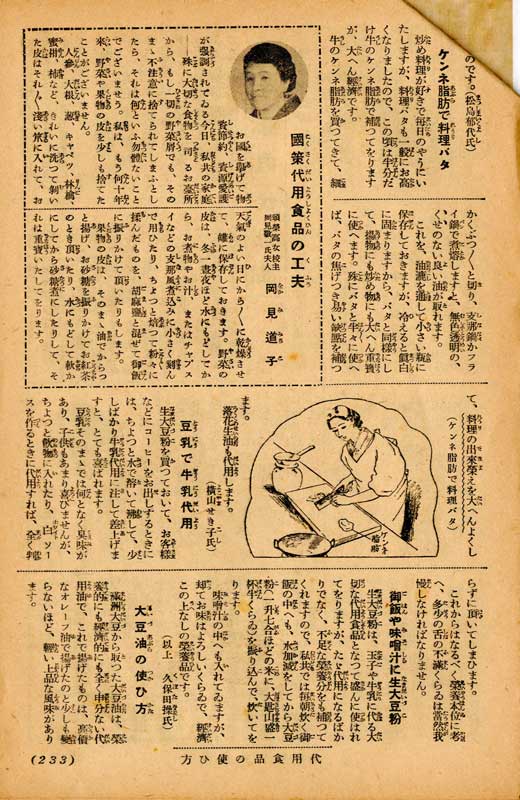 のです。(松島郁代氏)
ケンネ脂肪で料理バタ
炒め料理が好きで毎日のやうにい
たしますが、料理バタも一般にお高
くなりましたので、この頃は半分だ
け牛のケンネ脂肪で補つてをります
が、大へん經濟です。
牛のケンネ脂肪を買つてきて、細
かくぶつ〳〵と切り、支那鍋かフラ
イ鍋で煮熔しますと、無色透明の、
くせのない良い油が取れます。
これを、油漉を通して小さい瓶に
保存しておきますが、冷えると眞白
に固まりますから、バタと同樣にし
て、揚物にも炒め物にも大へん重寶
に使へます。殊にバタと半々に使へ
ば、バタの焦げつき易い缺點を補つ
て、料理の出來榮えを大へんよくし
(ケンネ脂肪で料理バタ)
ケンネ脂肪
ます。
落花生油も代用します。
(横山せき子氏)
豆乳で牛乳代用
生大豆粉を買つておいて、お客樣
などにコーヒーをお出しするときに
は、ちよつと水で溶いて沸して、少
しばかり牛乳代用に注して差上げま
すと、とても喜ばれます。
豆乳そのまゝでは何となく臭味が
あり、子供もあまり喜びませんが、
ちよつと飮物に入れたり、白ソー
スを作るときに代用すれば、全く判
らずに頂いてしまひます。
これからはなるべく榮養本位に考
へ、多少の舌の不滿くらゐは當然我
慢しなければなりません。
御飯や味噌汁に生大豆粉
生大豆粉は、玉子や牛乳に代る大
切な代用食品となつて盛んに使はれ
てをりますが、たゞ代用になるばか
りでなく、不足な榮養分をも補つて
くれますので、私共では毎朝炊く御
飯の中へも、水加減をしてから大豆
粉(一升七合ほどの米に、大匙山盛一
杯半くらゐ)を振り込んで、炊いてを
ります。
味噌汁の中へも入れてゐますが、
却てお味はよろしいくらゐで、經濟
この上なしの榮養品です。
(以上 久保田艷氏)
大豆油の使ひ方
滿洲大豆から取つた大豆油は、榮
養的にも經濟的にも全く申分ない代
用油で、これで揚げたものは、高價
なオレーブ油で揚げたのと少しも變
らないほど、輕い上品な風味があり
ます。
國策代用食品の工夫
頌榮高女校主
岡見氏夫人
岡見道子
お國を擧げて物
資節約、資源愛護
が強調されてゐる今日、私共の家庭
殊に大切な食物を司るお臺所
から、もし一切の野菜屑でも、その
まゝ不注意に捨てられてしまふとし
たら、それは何といふ勿體ないこと
でございませう。私は、もう何十年
來、野菜や果物の皮を少しも捨てた
ことがございません。
人參、大根、葱、キャベツ、林檎、
蜜柑、柿など、きれいに洗つて剝い
た皮はそれ〴〵淺い笊に入れて、お
天氣のよい日にから〳〵に乾燥させ
て、罐に保存しておきます。野菜の
皮は、冬一晝夜ほど水にもどしてか
ら、お煮物やお汁、またはキャプス
イなどの支那風煮込みに小さく刻ん
で用ひたり、ちよつと焙つて粉々に
揉んだものを、胡麻鹽と混ぜて御飯
に振りかけて頂いたりもします。
果物の皮は、そのまゝ油でからつ
と揚げお砂糖を振りかけてお紅茶
のとき頂いたり、水にもどして軟か
にしてから砂糖煮にしたりして、そ
れは重寶いたしてをります。
代用食品の使ひ方
(233)